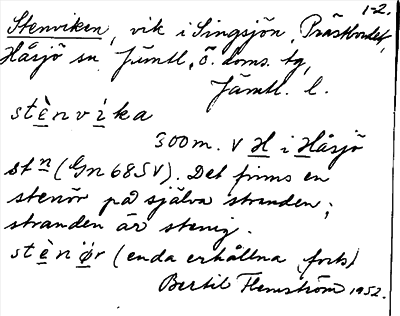 1-2.
Stenviken, vik i Singsjön, Prästbordet,
Håsjö sn Jämtl. ö. doms. tg,
Jämtl. l.
stènvika
300 m. V H i Håsjö
stn (Gn 68 SV). Det finns en
stenör på själva stranden;
stranden är stenig.
stènør (enda erhållna form)
Bertil Flemström 1952.